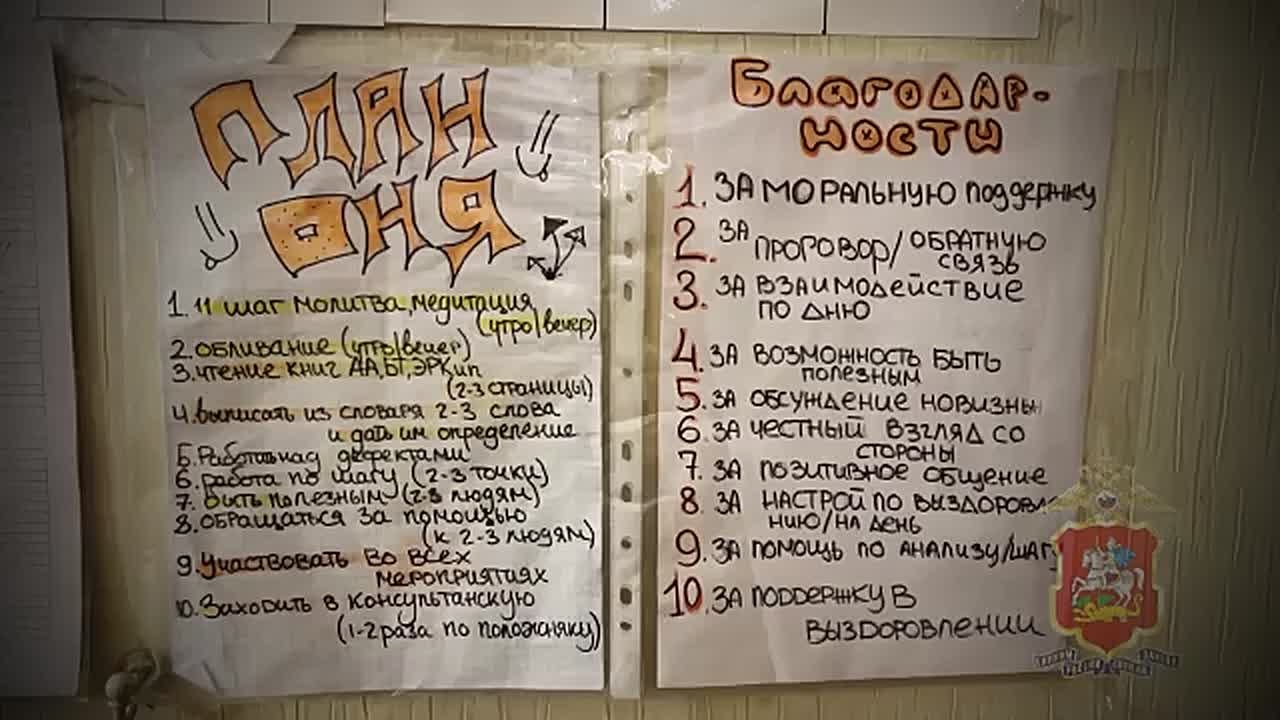 ПЛАН
ДНЯ
1. 11 шаг молитва, медитация
(утро/вечер)
2. обливание (утро/вечер)
3. чтение книг АА, БТ, ЭРКип
(2-3 страницы)
4. выписать из словаря 2-3 слова
и дать им определение
5. Работа над дефектами
6. работа по шагу (2-3 точки)
7. быть полезным (2-3 людям)
8. обращаться за помощью
(к 2-3 людям)
9. Участвовать во всех
мероприятиях
10. Заходить в консультанскую
(1-2 раза по положняку)
БЛАГОДАР-
НОСТИ
1. ЗА МОРАЛЬНУЮ поддержку
2. ЗА ПРОГОВОР/ОБРАТНУЮ
СВЯЗЬ
3. ЗА ВЗАИМОДЕЙСТВИЕ
ПО ДНЮ
4. ЗА ВОЗМОЖНОСТЬ БЫТЬ
ПОЛЕЗНЫМ
5. ЗА ОБСУЖДЕНИЕ НОВИЗНЫ
6. ЗА ЧЕСТНЫЙ ВЗГЛЯД СО
СТОРОНЫ
7. ЗА ПОЗИТИВНОЕ ОБЩЕНИЕ
8. ЗА НАСТРОЙ ПО ВЫЗДОРОВЛЕ
НИЮ/НА ДЕНЬ
9. ЗА ПОМОЩЬ ПО АНАЛИЗУ/ШАГУ
10. ЗА ПОДДЕРЖКУ В
ВЫЗДОРОВЛЕНИИ